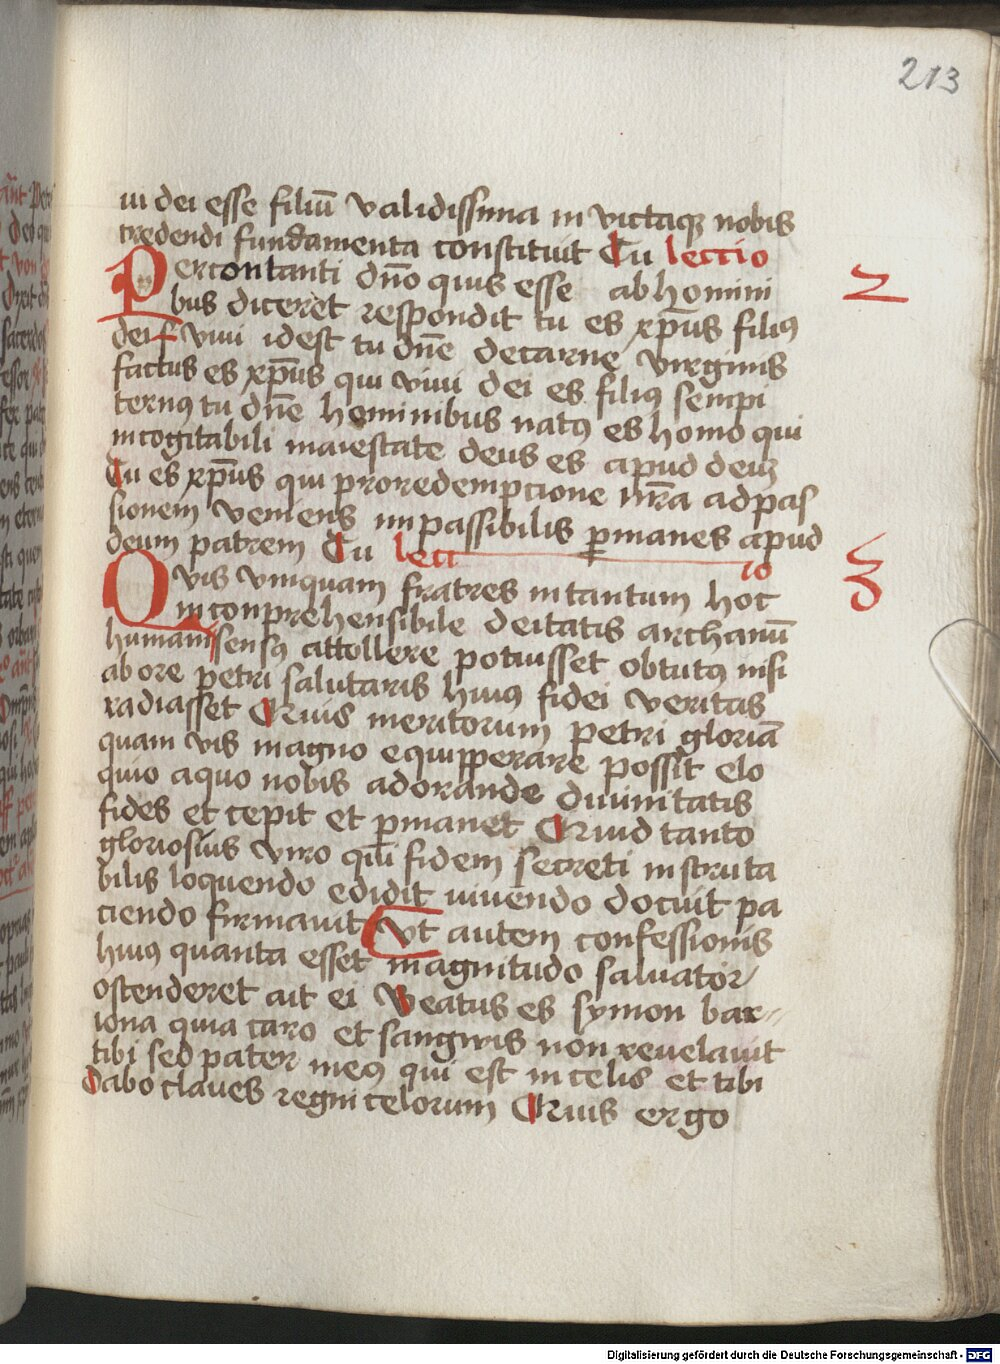 213
ui dei esse filiū validissima in victaqꝫ nobis
credendi fundamenta constituit Tu lectio
Percontanti dn̄o quis esse ab homini
2
bus diceret respondit tu es xp̄us filiꝰ
dei f vivi idest tu dn̄e decarne virginis
factus es xp̄us qui vivi dei es filiꝰ sempi
ternꝰ tu dn̄e hominibus natꝰ es homo qui
incogitabili maiestate deus es apud deuꝫ
Tu es xp̄us qui proredempcione nr̄a adpas
sionem veniens inpassibilis ꝑmanes apud
deum patrem Tu lect
io
3
Qvis vmquam fratres intantum hoc
inconprehensibile deitatis archanū
humani sensꝰ attollere potuisset obtutꝰ nisi
ab ore petri salutaris huiꝰ fidei veritas
radiasset Cuius meritorum petri gloriā
quam vis magno equipperare possit elo
quio aquo nobis adorande diuinitatis
fides et cepit et ꝑmanet Quid tanto
gloriosius viro qui fidem secreti inscruta
bilis loquendo edidit uiuendo docuit pa
ciendo firmauit Vt autem confessionis
huiꝰ quanta esset magnitudo saluator
ostenderet ait ei Beatus es symon bar
iona quia caro et sangwis non reuelauit
tibi sed pater meꝰ qui est in celis et tibi
dabo claues regni celorum Cuius ergo
Digitalisierung gefördert durch die Deutsche Forschungsgemeinschaft - DFG